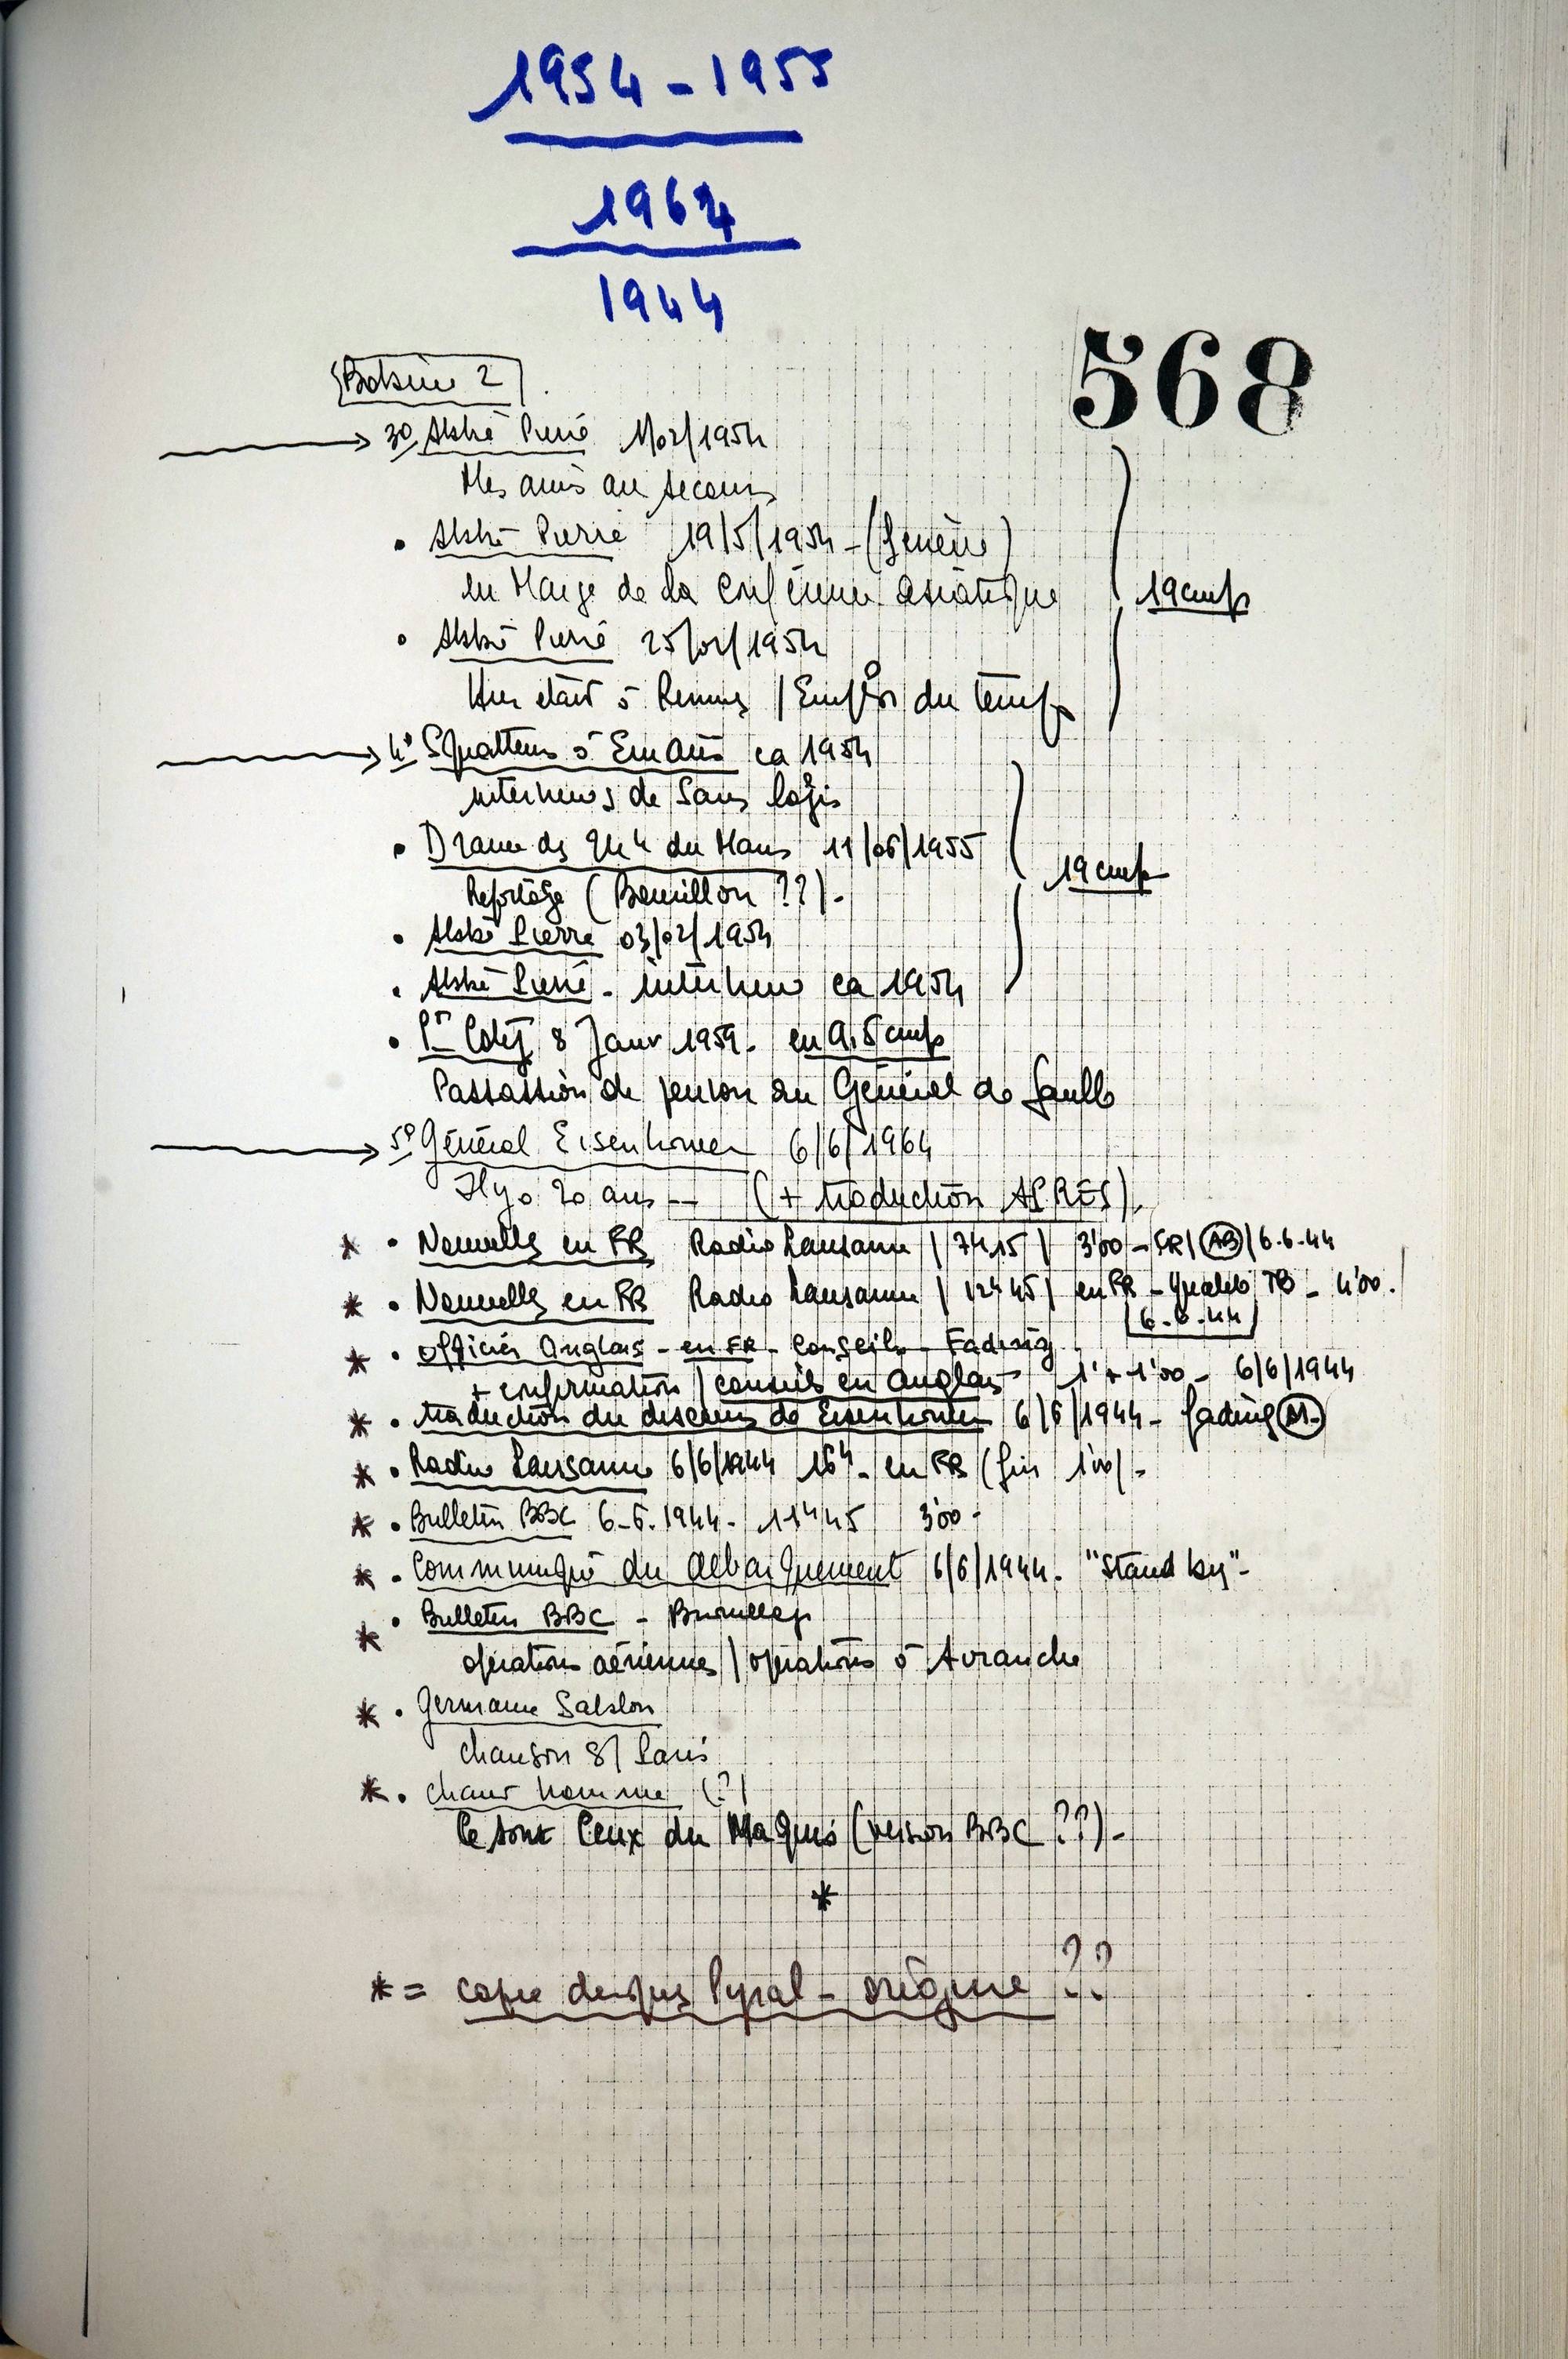 1954-1955
1964
1944
568
Bobine 2
3° Abbé Pierre 1/02/1954
Mes amis au secours
• Abbé Pierre 19/5/1954 - (Genève)
en Marge de la Conférence asiatique
19 cm/s
• Abbé Pierre 25/02/1954
Hier était à Rennes / Emploi du temps
4° Squatters à Emaüs ca 1954
interviews de Sans logis
• Drame des 24h du Mans 11/06/1955
19 cm/s
Reportage (Bouillon ??).
• Abbé Pierre 03/02/1954
• Abbé Pierre - interview ca 1954
• Pt Coty 8 Janv 1959. en 9,5 cm/s
Passassion de pouvoir au Général de Gaulle
5° Général Eisenhower 6/6/1964
Il y a 20 ans -- (+ traduction APRES).
* • Nouvelles en FR Radio Lausanne / 7h15 / 3'00 - SR/ (AB) / 6-6-44
* • Nouvelles en FR Radio Lausanne / 12h45 / en FR - Qualité TB - 4'00.
6-6-44
* • Officier Anglais - en FR - Conseils - Fading
+ confirmation / conseils en anglais 1' + 1'00 - 6/6/1944
* • traduction du discours de Eisenhower 6/6/1944 - fading (M-)
* • Radio Lausanne 6/6/1944 16h - en FR (fin 1'00) -
* • Bulletin BBC 6-6-1944 - 11h45 3'00 -
* • Communiqué du débarquement 6/6/1944. "Stand by" -
* • Bulletin BBC - Bruxelles
opérations aériennes / opérations à Avranche
* • Germaine Sablon
chanson s/ Paris
* • chant homme (?)
Ce sont Ceux du Maquis (version BBC ??) -
*
* = copie disques Pyral - origine ??